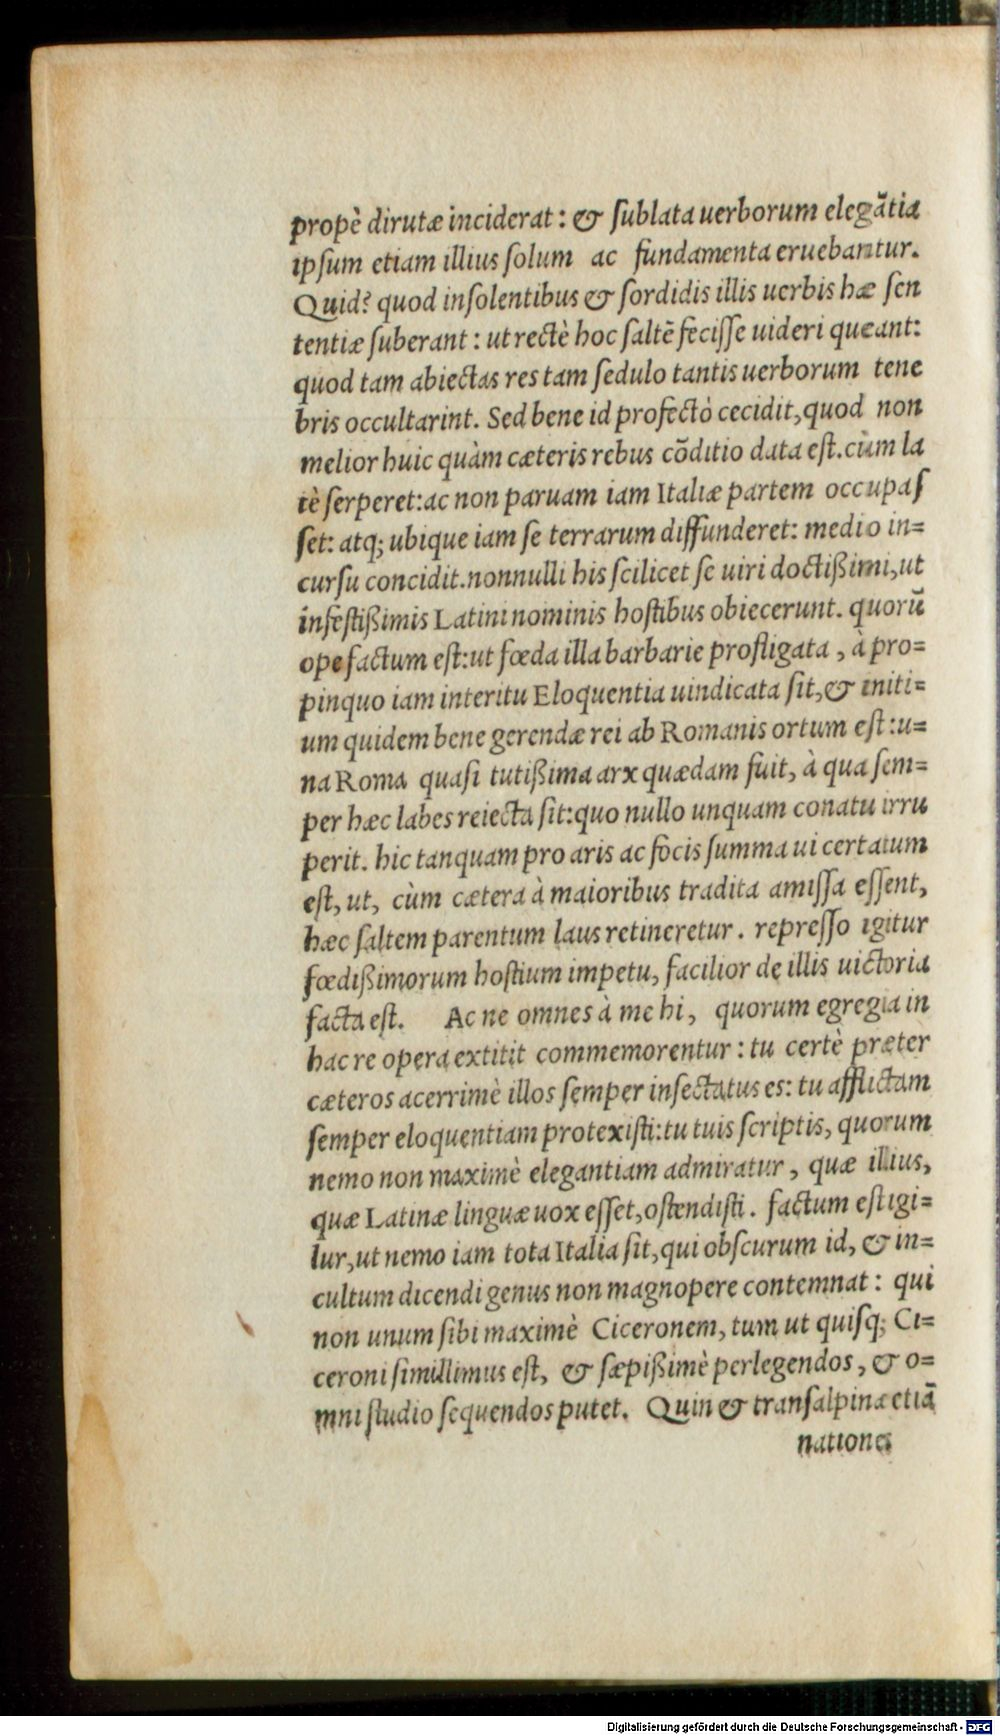 propè dirutæ inciderat: & ſublata uerborum elegãtia
ipſum etiam illius ſolum ac fundamenta eruebantur.
Quid? quod inſolentibus & ſordidis illis uerbis hæ ſen
tentiæ ſuberant: ut rectè hoc ſaltẽ feciſſe uideri queant:
quod tam abiectas res tam ſedulo tantis uerborum tene
bris occultarint. Sed bene id profectò cecidit, quod non
melior huic quàm cæteris rebus cõditio data eſt. cùm la
tè ſerperet: ac non paruam iam Italiæ partem occupaſ
ſet: atq; ubique iam ſe terrarum diffunderet: medio in=
curſu concidit. nonnulli his ſcilicet ſe uiri doctißimi, ut
infeſtißimis Latini nominis hoſtibus obiecerunt. quorũ
ope factum eſt: ut fœda illa barbarie profligata, à pro=
pinquo iam interitu Eloquentia uindicata ſit, & initi=
um quidem bene gerendæ rei ab Romanis ortum eſt: u=
na Roma quaſi tutißima arx quædam fuit, à qua ſem=
per hæc labes reiecta ſit: quo nullo unquam conatu irru
perit. hic tanquam pro aris ac focis ſumma ui certatum
eſt, ut, cùm cætera à maioribus tradita amiſſa eſſent,
hæc ſaltem parentum laus retineretur. repreſſo igitur
fœdißimorum hoſtium impetu, facilior de illis uictoria
facta eſt. Ac ne omnes à me hi, quorum egregia in
hac re opera extitit commemorentur: tu certè præter
cæteros acerrimè illos ſemper inſectatus es: tu afflictam
ſemper eloquentiam protexiſti: tu tuis ſcriptis, quorum
nemo non maximè elegantiam admiratur, quæ illius,
quæ Latinæ linguæ uox eſſet, oſtendiſti. factum eſt igi=
lur, ut nemo iam tota Italia ſit, qui obſcurum id, & in=
cultum dicendi genus non magnopere contemnat: qui
non unum ſibi maximè Ciceronem, tum ut quiſq; Ci=
ceroni ſimillimus eſt, & ſæpißimè perlegendos, & o=
mni ſtudio ſequendos putet. Quin & tranſalpinæ etiã
nationes
Digitalisierung gefördert durch die Deutsche Forschungsgemeinschaft - DFG